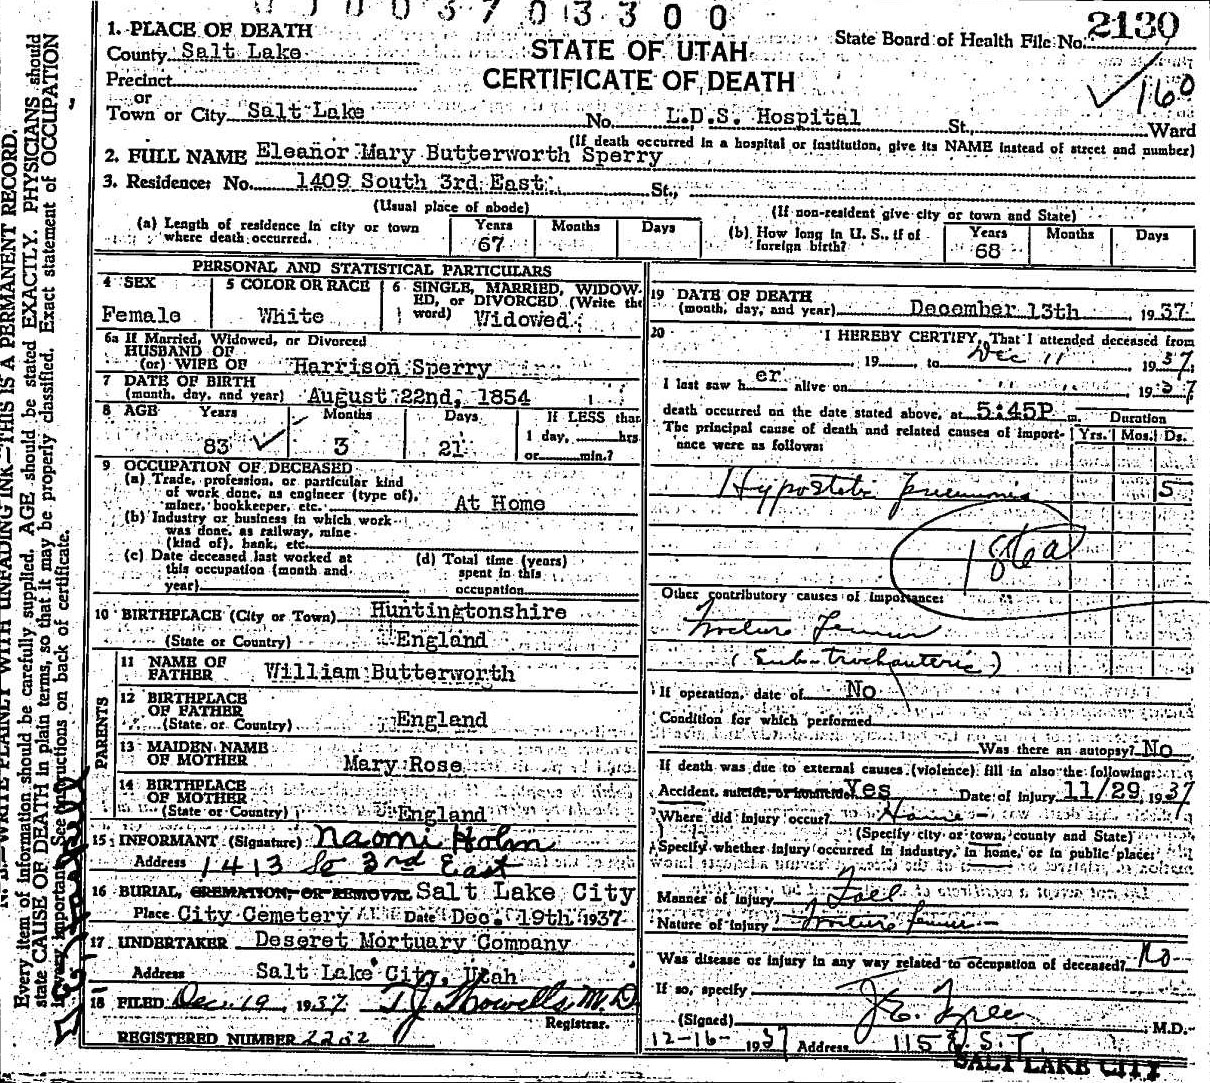 0 0 0 3 7 0 3 3 0 0
2130
160
1. PLACE OF DEATH
County Salt Lake
Precinct
or
Town or City Salt Lake No. L.D.S. Hospital St., Ward
STATE OF UTAH
CERTIFICATE OF DEATH
State Board of Health File No.
(If death occurred in a hospital or institution, give its NAME instead of street and number)
2. FULL NAME Eleanor Mary Butterworth Sperry
3. Residence: No. 1409 South 3rd East St.,
(Usual place of abode)
(If non-resident give city or town and State)
(a) Length of residence in city or town where death occurred. Years 67 Months Days
(b) How long in U. S., if of foreign birth? Years 68 Months Days
PERSONAL AND STATISTICAL PARTICULARS
4 SEX Female
5 COLOR OR RACE White
6 SINGLE, MARRIED, WIDOWED, or DIVORCED (Write the word) Widowed
6a If Married, Widowed, or Divorced
HUSBAND OF
(or) WIFE OF Harrison Sperry
7 DATE OF BIRTH
(month, day, and year) August 22nd, 1854
8 AGE Years 83 Months 3 Days 21 If LESS than 1 day, hrs or min.?
9 OCCUPATION OF DECEASED
(a) Trade, profession, or particular kind of work done, as engineer (type of), miner, bookkeeper, etc. At Home
(b) Industry or business in which work was done, as railway, mine (kind of), bank, etc.
(c) Date deceased last worked at this occupation (month and year)
(d) Total time (years) spent in this occupation
10 BIRTHPLACE (City or Town) Huntingtonshire
(State or Country) England
PARENTS
11 NAME OF FATHER William Butterworth
12 BIRTHPLACE OF FATHER
(State or Country) England
13 MAIDEN NAME OF MOTHER Mary Rose
14 BIRTHPLACE OF MOTHER
(State or Country) England
15 INFORMANT (Signature) Naomi Holm
Address 1413 So 3rd East
16 BURIAL, CREMATION, OR REMOVAL Salt Lake City
Place City Cemetery Date Dec. 19th 1937
17 UNDERTAKER Deseret Mortuary Company
Address Salt Lake City, Utah
18 FILED Dec. 19, 1937 T.J. Howells M.D.
Registrar.
REGISTERED NUMBER 2232
19 DATE OF DEATH
(month, day, and year) December 13th 1937
20 I HEREBY CERTIFY, That I attended deceased from
19 , to Dec 11 1937
I last saw her alive on " " 1937
death occurred on the date stated above, at 5:45P m.
Duration
The principal cause of death and related causes of importance were as follows:
Yrs. Mos. Ds.
Hypostatic pneumonia 5
186a
Other contributory causes of importance:
Fracture Femur
(Sub-trochanteric)
If operation, date of No
Condition for which performed
Was there an autopsy? No
If death was due to external causes (violence) fill in also the following:
Accident, suicide, or homicide? Yes Date of injury 11/29, 1937
Where did injury occur? Home
(Specify city or town, county and State)
Specify whether injury occurred in industry, in home, or in public place:
Manner of injury Fall
Nature of injury Fracture femur
Was disease or injury in any way related to occupation of deceased? No
If so, specify
(Signed) M.D.
12-16- 1937 Address 115 E. S. T.
SALT LAKE CITY
N. B.—WRITE PLAINLY WITH UNFADING INK—THIS IS A PERMANENT RECORD.
Every item of information should be carefully supplied. AGE should be stated EXACTLY. PHYSICIANS should
state CAUSE OF DEATH in plain terms, so that it may be properly classified. Exact statement of OCCUPATION
is very important. See instructions on back of certificate.